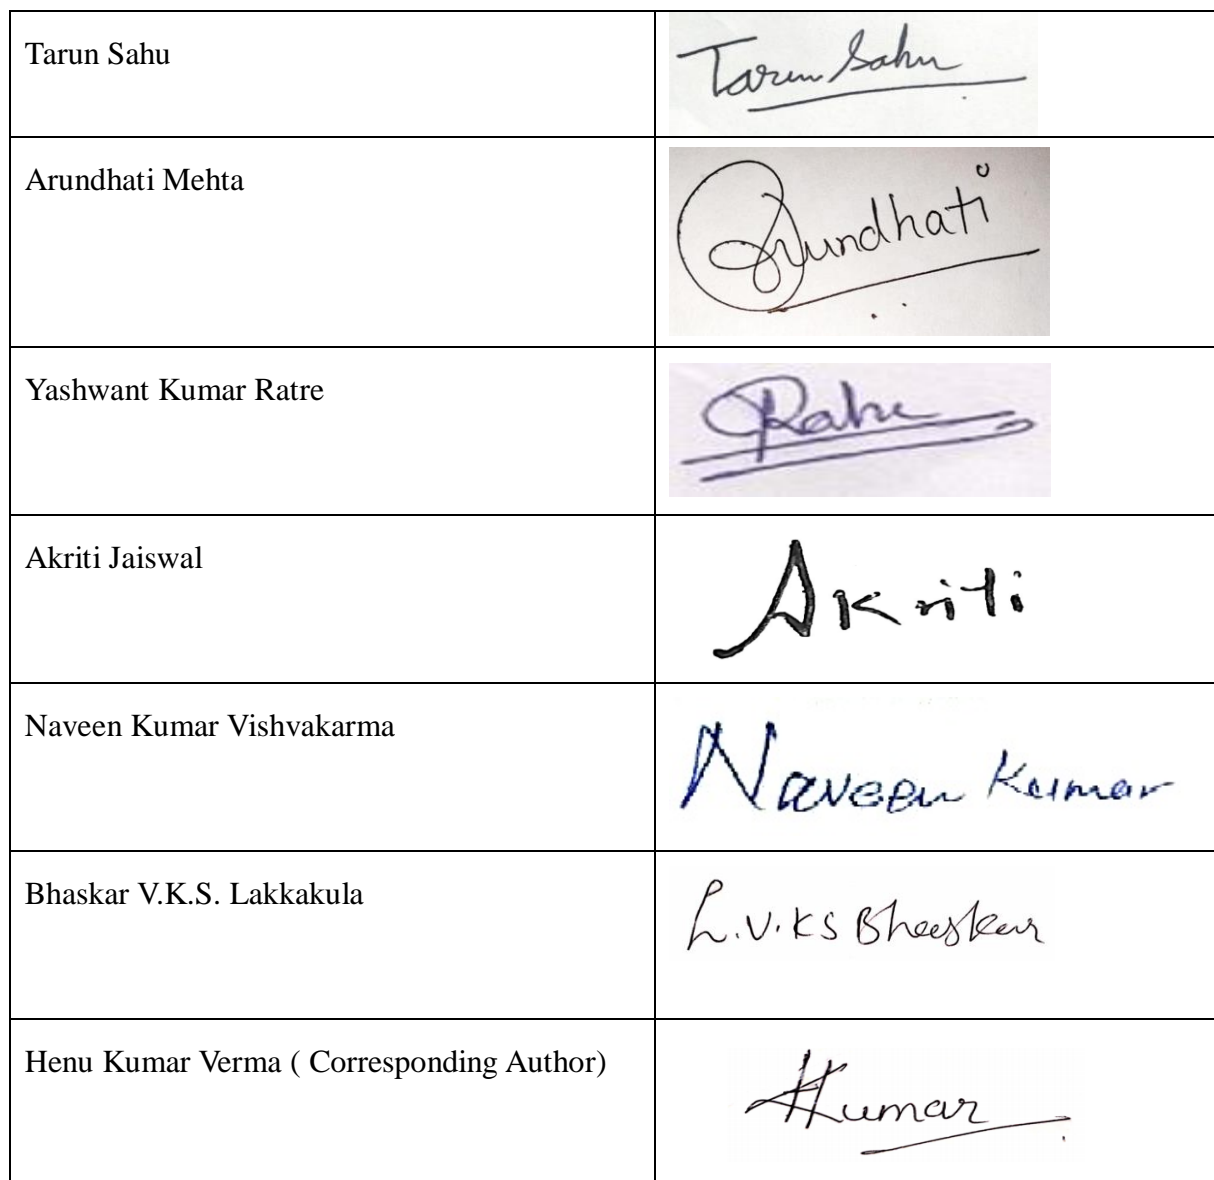 Tarun Sahu
Tarun Sahu
Arundhati Mehta
Arundhati
Yashwant Kumar Ratre
Akriti Jaiswal
Akriti
Naveen Kumar Vishvakarma
Naveen Kumar
Bhaskar V.K.S. Lakkakula
L.V.KS Bhaskar
Henu Kumar Verma ( Corresponding Author)
HKumar